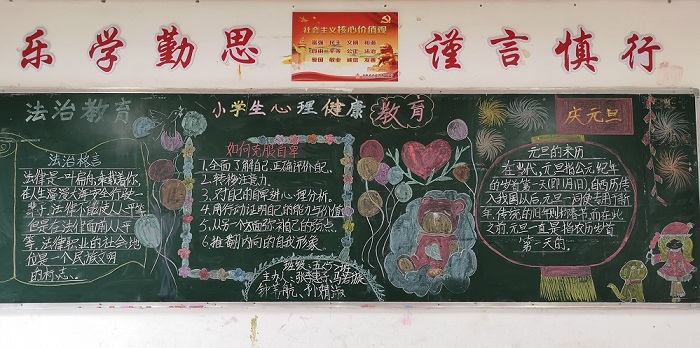 乐学勤思
社会主义核心价值观
富强 民主 文明 和谐
自由 平等 公正 法治
爱国 敬业 诚信 友善
谨言慎行
法治教育
法治格言
法律是一叶扁舟,来载着你
在人生漫漫大海
法律不能使人人平等
但是在法律面前人人平
等,法律职业的社会地
位是一个民族文明
的标志。
小学生心理健康教育
如何克服自卑
1.全面了解自己,正确评价自己。
2.转移注意力。
3.对自己的自卑进心理分析。
4.用行动证明自己的能力与价值
5.从另一方面弥补自己的弱点
6.推翻内向的自我形象
班级:五
主办:
庆元旦
元旦的来历
在当代,元旦指公元纪年
的岁首第一天(即1月1日),自西历传
入我国以后,元旦一词便专用于新
年,传统的旧年则称春节,而在此
之前,元旦一直是指农历岁首
第一天的。